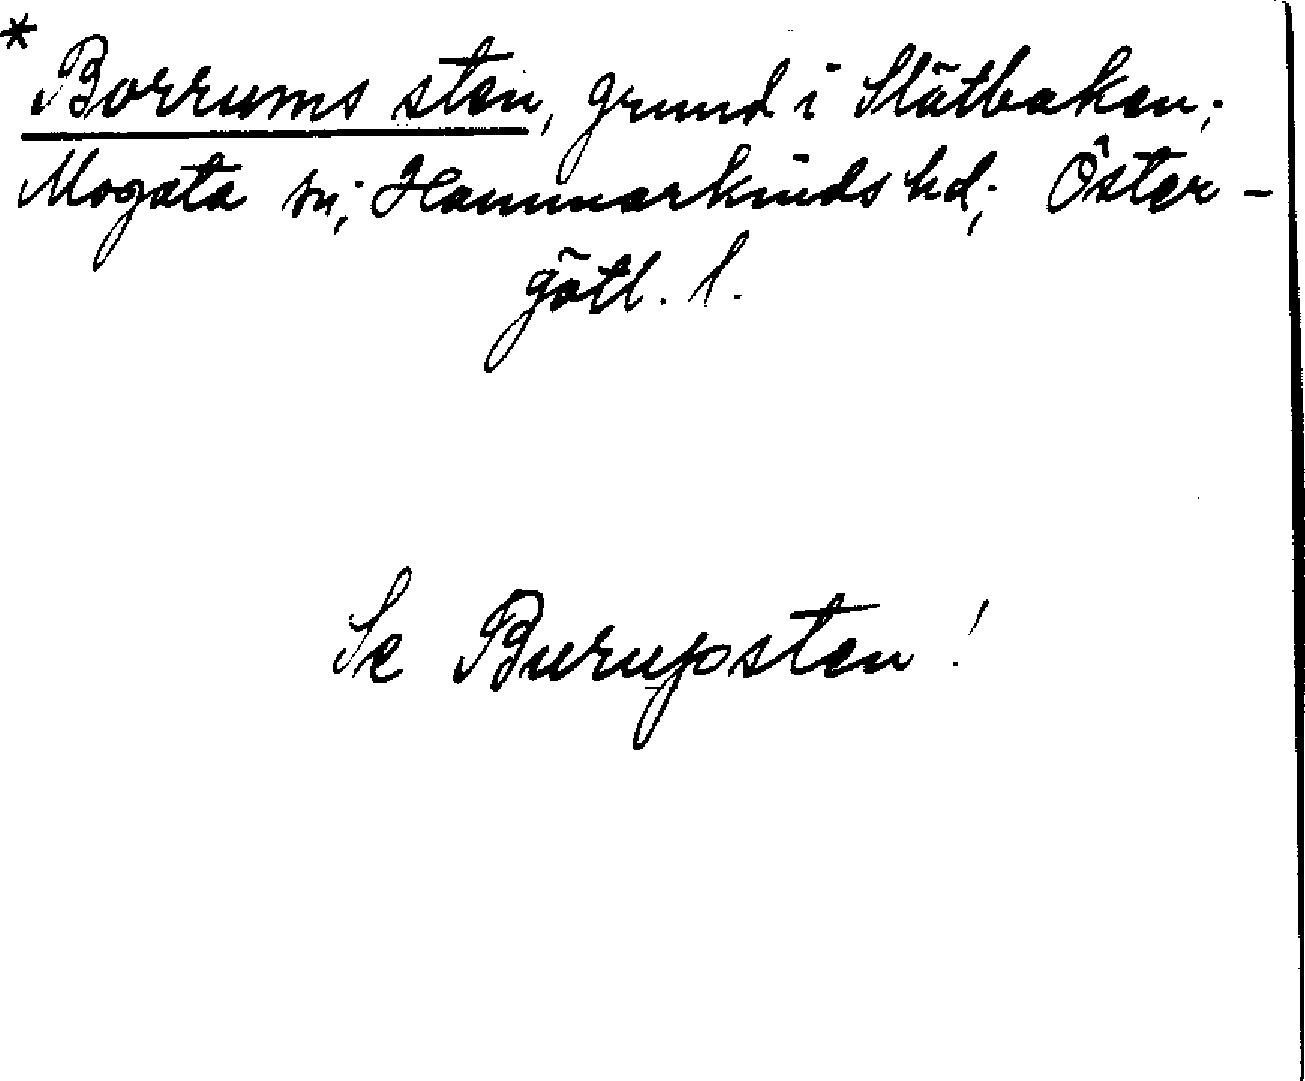 * Borrums sten, grund i Slätbaken;
Mogata sn; Hammarkinds hd; Öster-
götl. l.
Se Burupsten!